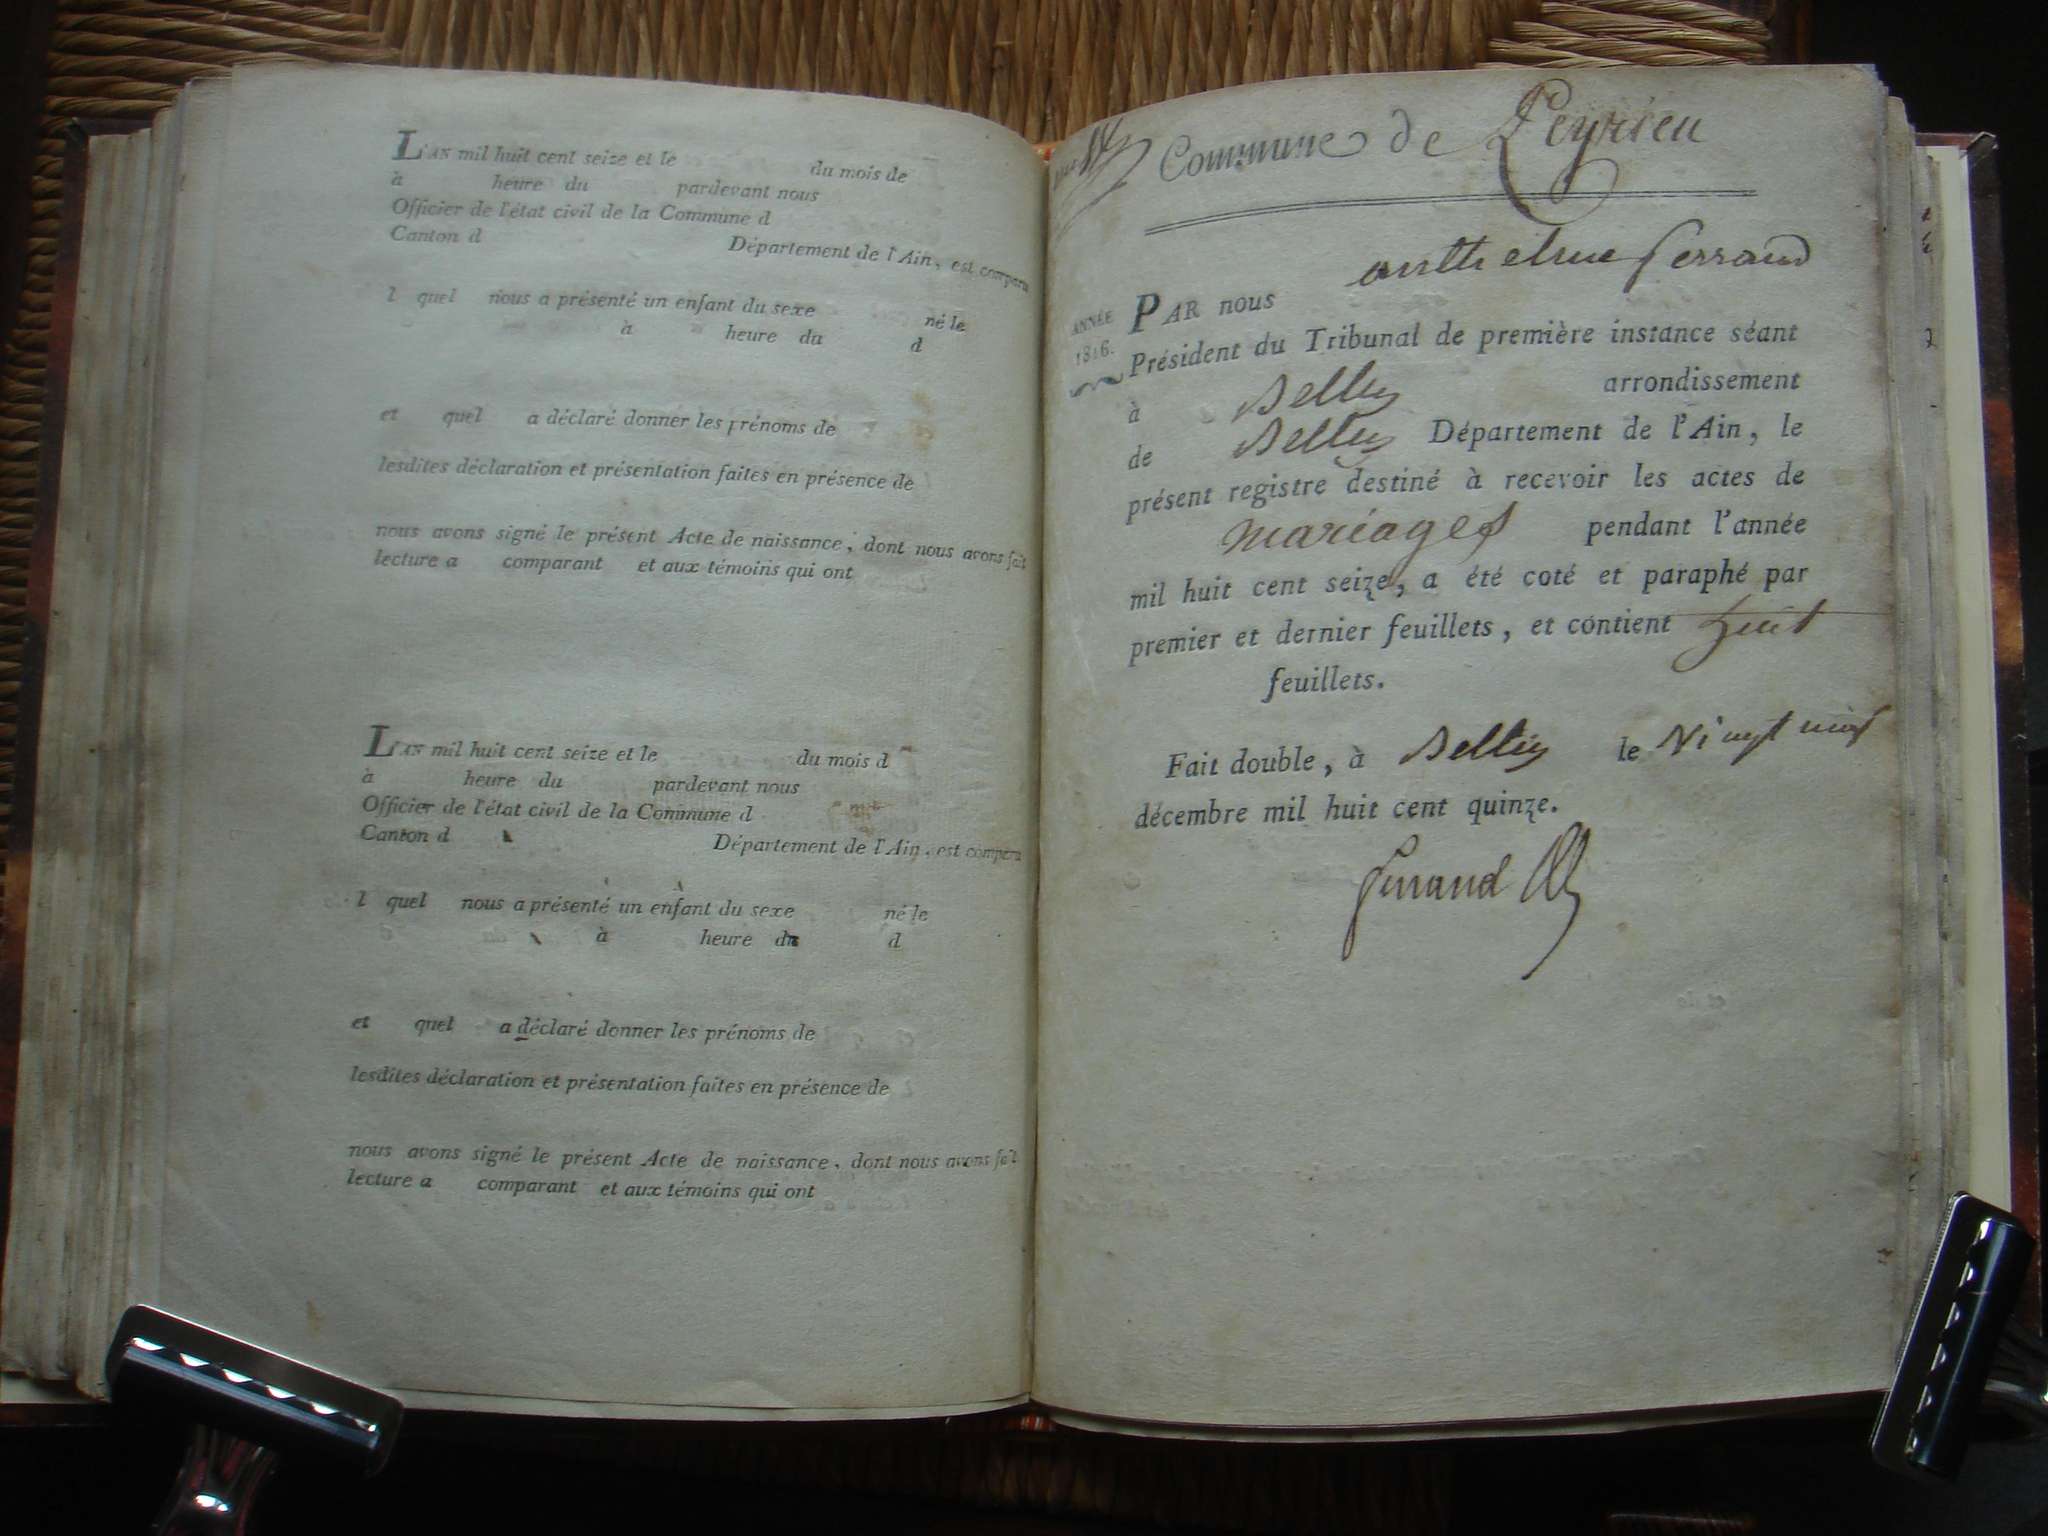 L'AN mil huit cent seize et le du mois de
à heure du pardevant nous
Officier de l'état civil de la Commune d
Canton d Département de l'Ain, est comparu
l quel nous a présenté un enfant du sexe né le
à heure du d
et quel a déclaré donner les prénoms de
lesdites déclaration et présentation faites en présence de
nous avons signé le présent Acte de naissance, dont nous avons fait
lecture a comparant et aux témoins qui ont
L'AN mil huit cent seize et le du mois d
à heure du pardevant nous
Officier de l'état civil de la Commune d
Canton d Département de l'Ain, est comparu
l quel nous a présenté un enfant du sexe né le
à heure du d
et quel a déclaré donner les prénoms de
lesdites déclaration et présentation faites en présence de
nous avons signé le présent Acte de naissance, dont nous avons fait
lecture a comparant et aux témoins qui ont
Commune de Peyrieu
anthelme ferrand
ANNÉE
1816.
PAR nous
Président du Tribunal de première instance séant
à Belley arrondissement
de Belley Département de l'Ain, le
présent registre destiné à recevoir les actes de
mariages pendant l'année
mil huit cent seize, a été coté et paraphé par
premier et dernier feuillets, et contient huit
feuillets.
Fait double, à Belley le Vingt neuf
décembre mil huit cent quinze.
ferrand